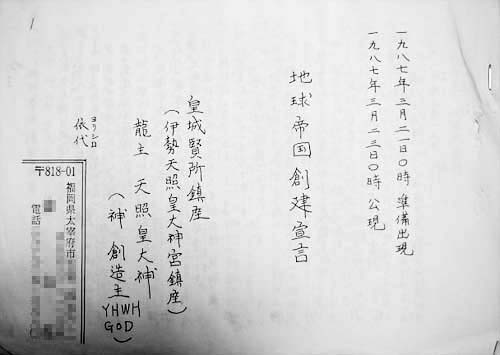 一九八七年三月二一日〇時 準備出現
一九八七年三月二三日〇時 公現
地球帝国創建宣言
皇城賢所鎮座
(伊勢天照皇大神宮鎮座)
龍主 天照皇大神
(神 創造主 YHWH GOD)
ヨリシロ
依代
〒818-01
福岡県太宰府市
電話